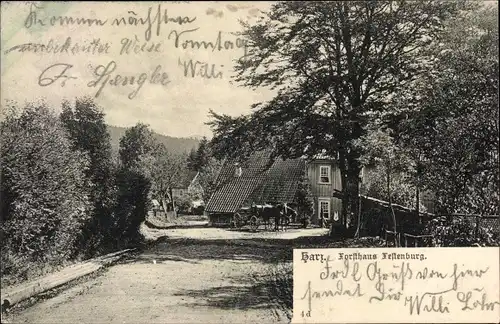 Kommen nächsten
unbekannter Weise Sonntag
Fr. Spengler Willi
Harz. Forsthaus Festenburg.
Frdl Gruß von hier
sendet Dir Willi Löhr
4d